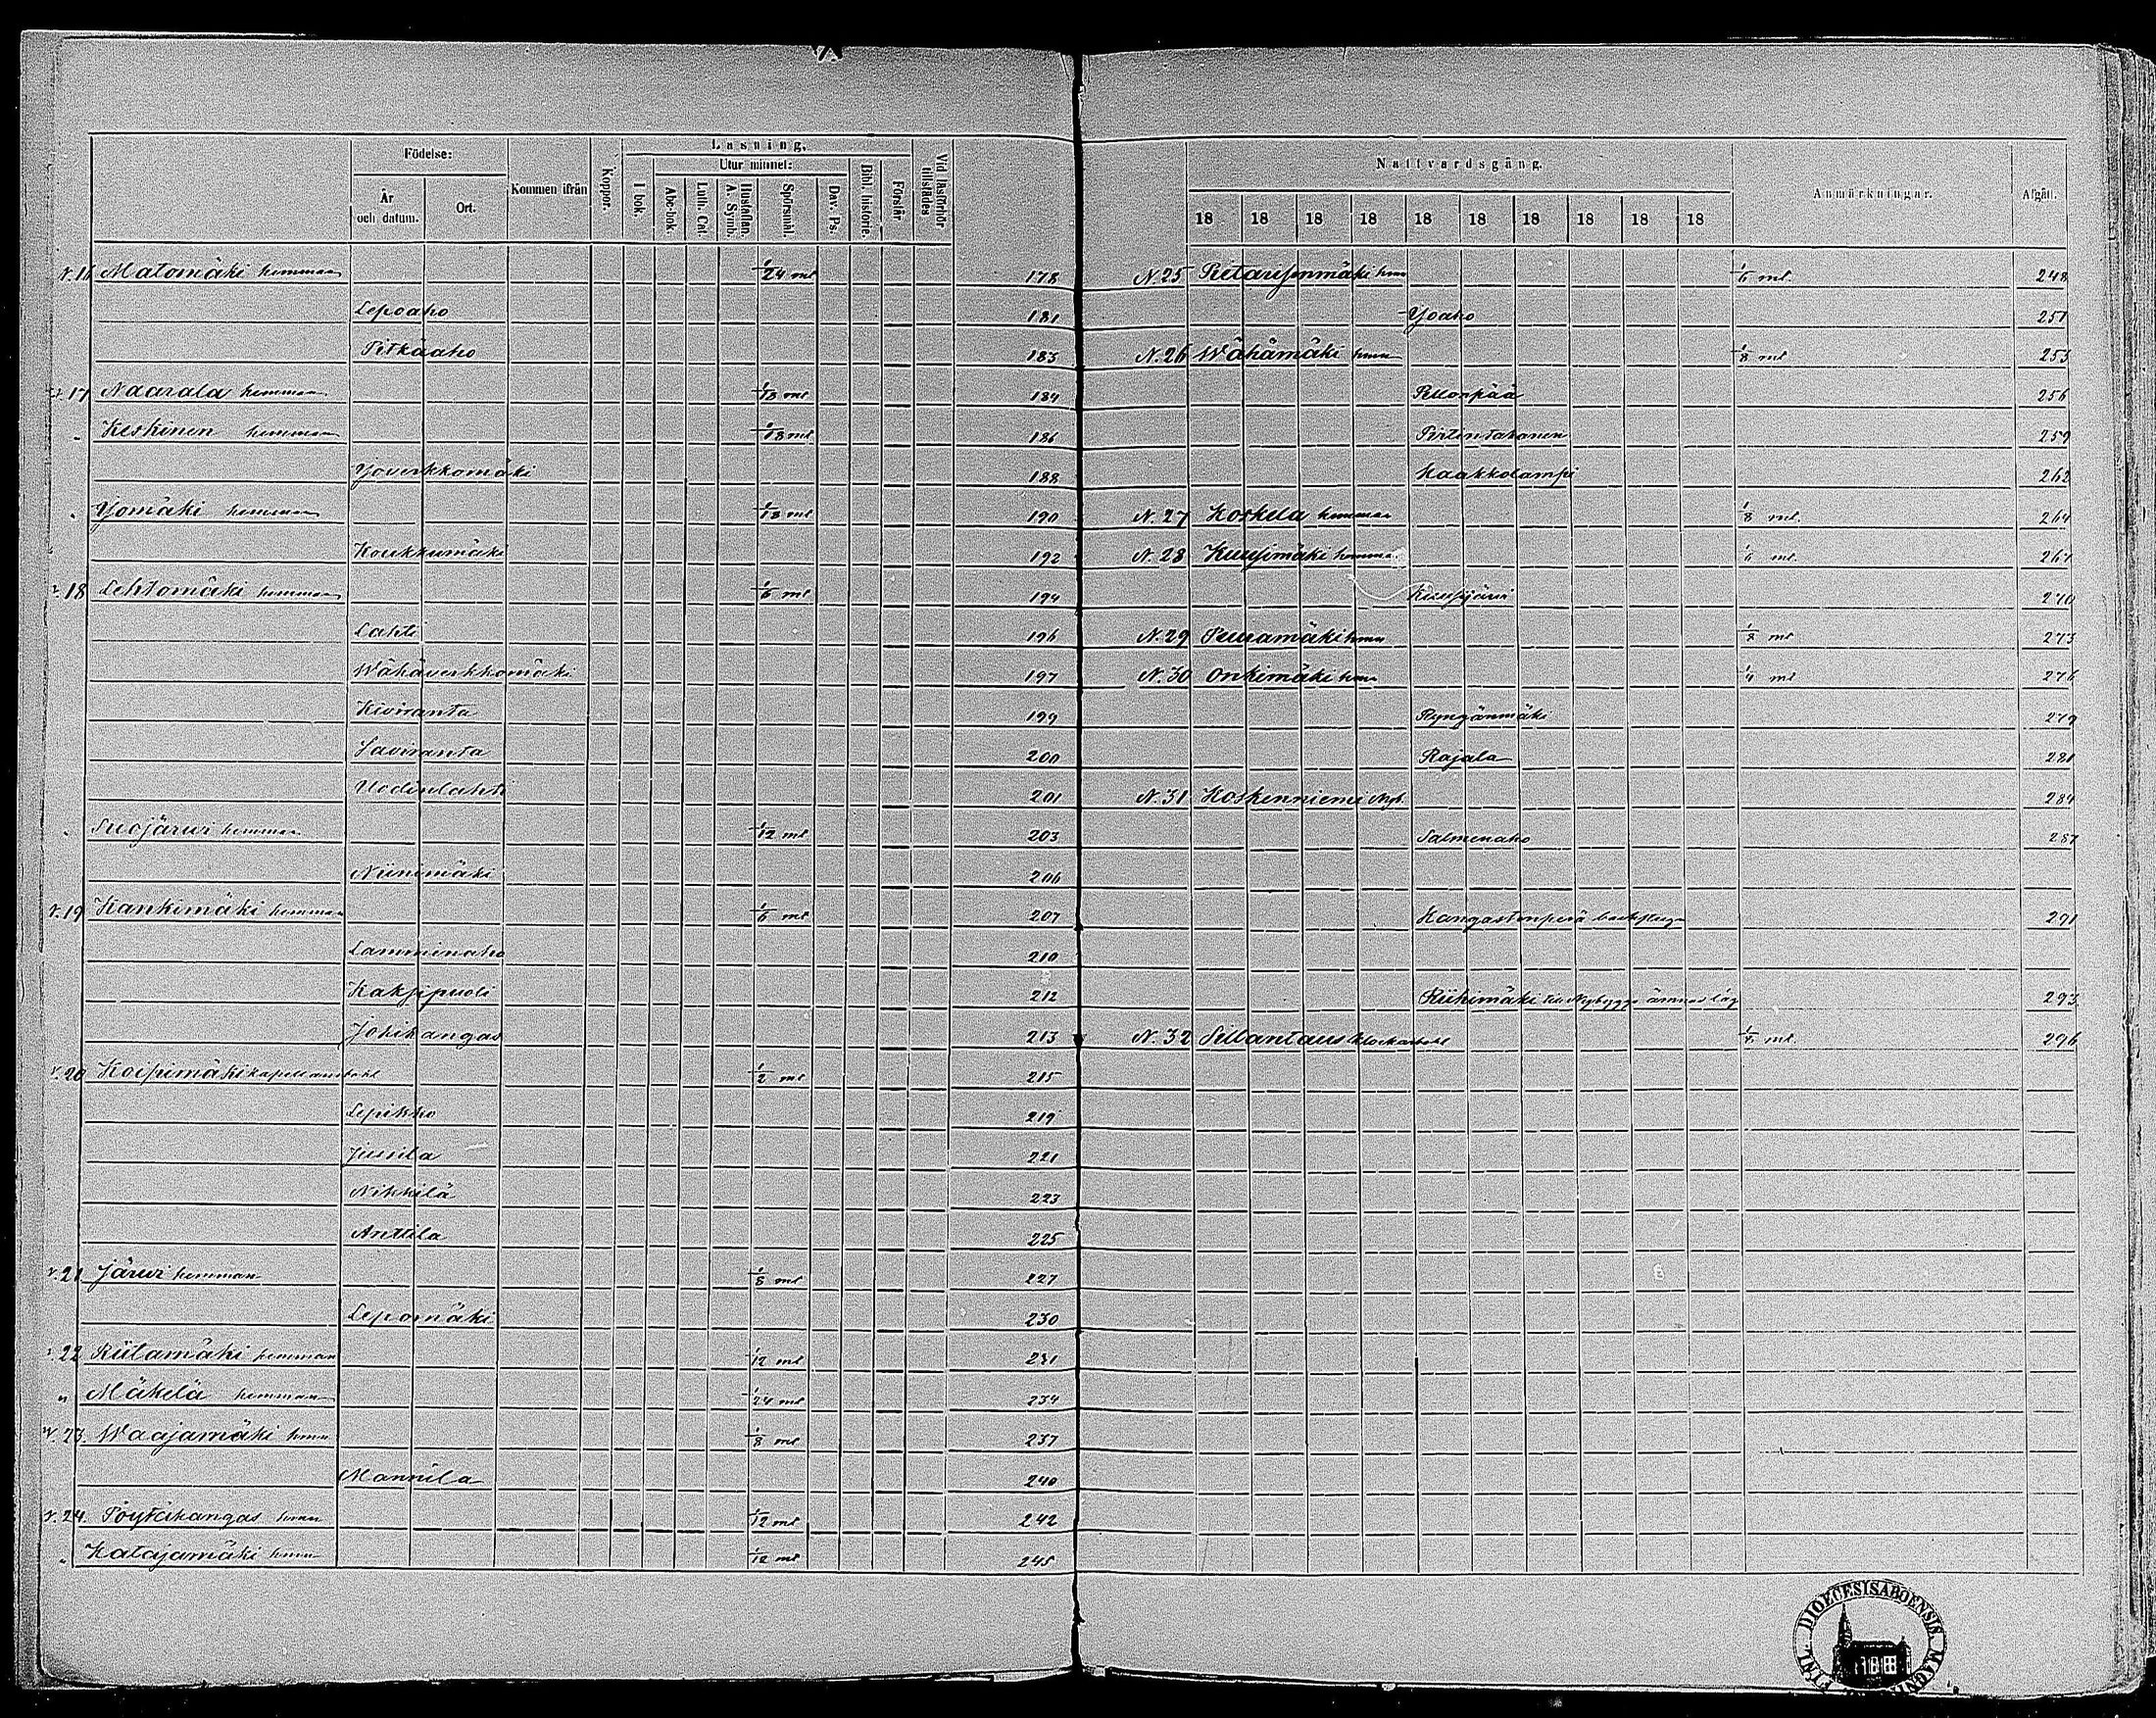 7.
Födelse:
År och datum.
Ort.
Kommen ifrån
Koppor.
Läsning.
I bok.
Utur minnet:
Abc-bok.
Luth. Cat.
Hustaflan. A. Symb.
Spörsmål.
Dav. Ps.
Bibl. historie.
Förstår
Vid läsförhör tillstädes
N. 16 Matomäki hemman 1/24 ml 178
Lepoaho 181
Pitkäaho 183
17 Naarala hemman 1/18 ml 184
" Keskinen hemman 1/18 ml 186
Yoverkkomäki 188
" Yomäki hemman 1/18 ml 190
Koukkumäki 192
18 Lehtomäki hemman 1/6 ml 194
Lahti 196
Wähäverkkomäki 197
Kiviranta 199
Saviranta 200
Uodinlahti 201
" Suojärwi hemman 1/12 ml 203
Niinimäki 206
N. 19 Kankimäki hemman 1/6 ml 207
Lamminaho 210
Kaksipuoli 212
Johikangas 213
N. 20 Koipimäki kapellansbohl 1/2 ml 215
Lepikko 219
Jussila 221
Nikkilä 223
Anttila 225
N. 21 Järwi hemman 1/8 ml 227
Lepomäki 230
22 Riilamäki hemman 1/12 ml 231
" Mäkelä hemman 1/24 ml 234
N. 23. Waajamäki hmn 1/8 ml 237
Mannila 240
N. 24. Pöytäkangas hmn 1/12 ml 242
" Katajamäki hmn 1/12 ml 245
Nattvardsgång.
18 18 18 18 18 18 18 18 18 18
Anmärkningar.
Afgått.
N. 25 Petarisenmäki hmn 1/6 ml. 248
Yoaho 251
N. 26 Wähämäki hmn 1/8 ml 253
Pellonpää 256
Pirtintakanen 259
Kaakkolampi 262
N. 27 Koskela hemman 1/8 ml. 264
N. 28 Kuusimäki hemman 1/6 ml. 267
Kuusijärwi 270
N. 29 Peuramäki hmn 1/8 ml 273
N. 30 Onkimäki hmn 1/4 ml 276
Ryngänmäki 279
Rajala 281
N. 31 Koskenniemi Nyb. 284
Salmenaho 287
Kangastenperä 291
Riihimäki till Nybygge ämnad läg 293
N. 32 Sillantaus klockarbohl 1/4 ml. 296
FINL. DIOECESIS ABOENSIS. MAGNI